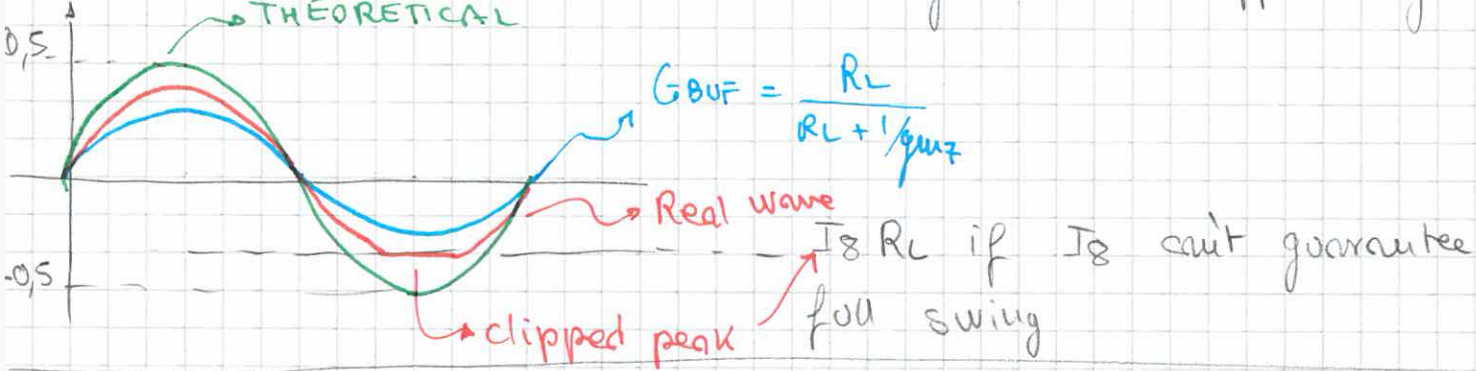 THEORETICAL
0,5
GBUF = RL / (RL + 1/gm7)
Real wave
I8 RL if I8 can't guarantee
-0,5
full swing
clipped peak